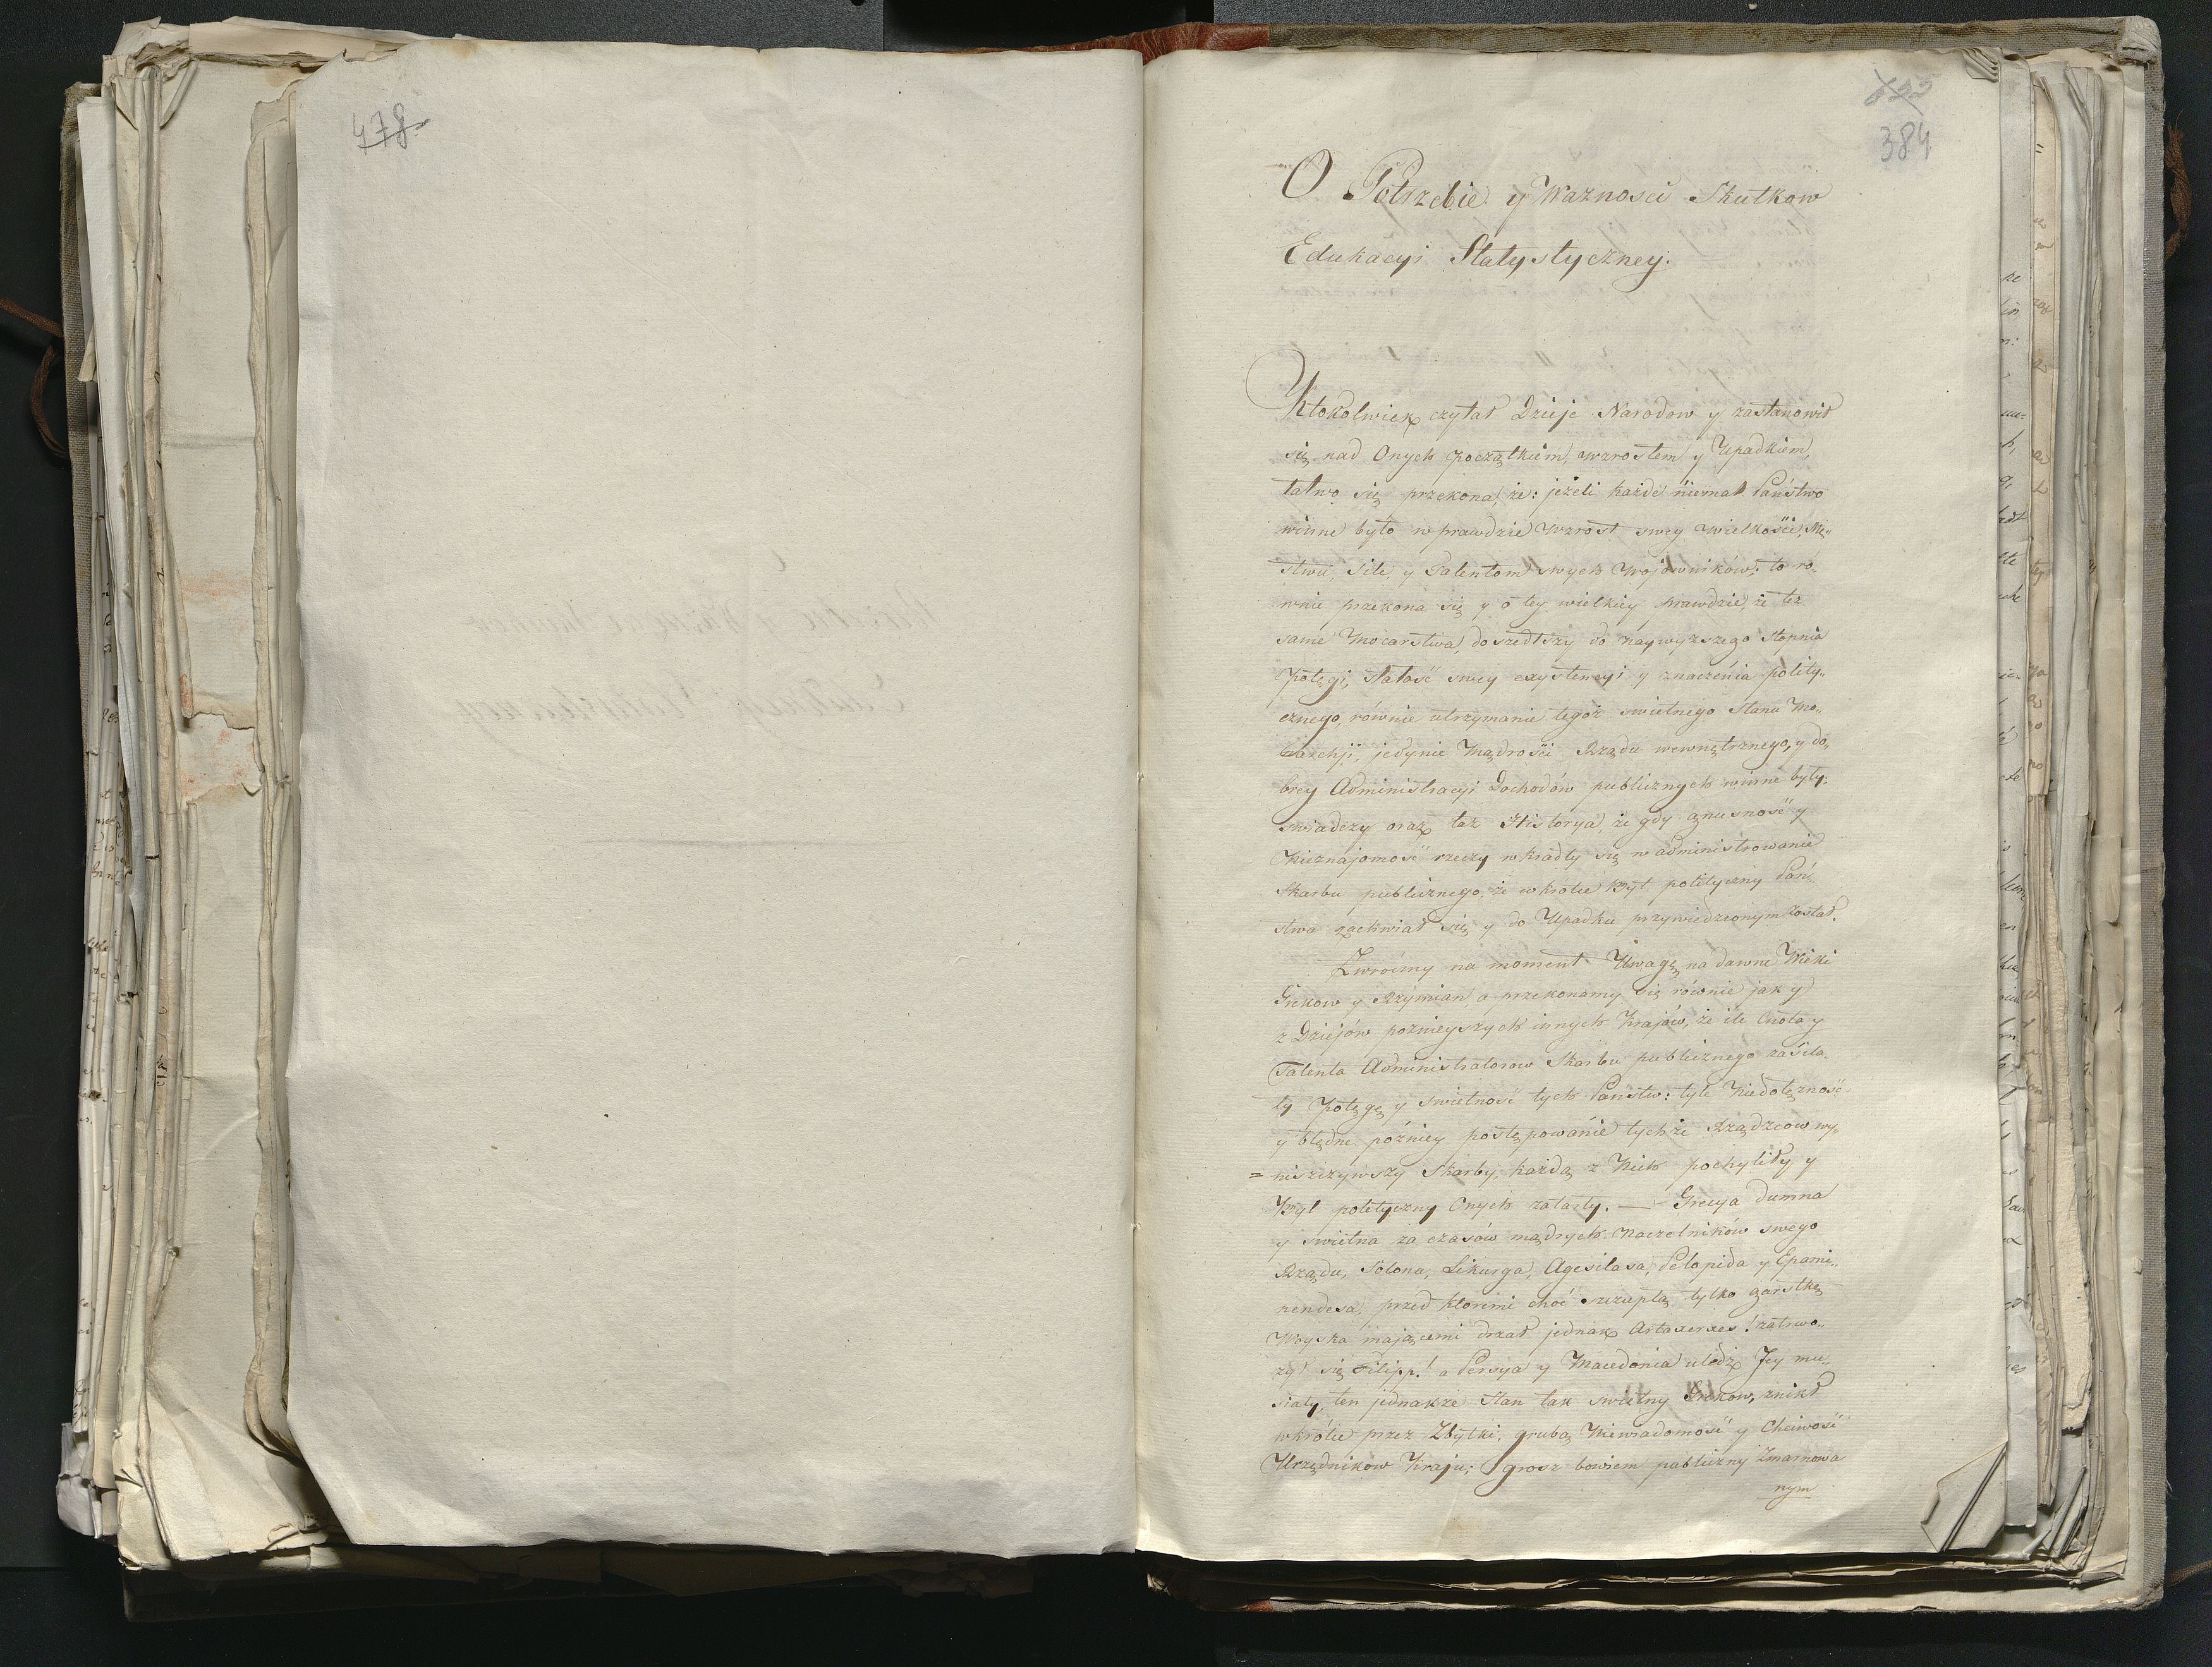 478
384
O Potrzebie y Wazności Skutkow
Edukacyi Statystyczney.
Ktokolwiek czytał Dzieje Narodow y zastanowił
się nad Onych początkiem, wzrostem y Upadkiem,
łatwo się przekona, że: jeżeli każde niemal Państwo
winne było wprawdzie wzrost swey wielkości, Mę„
stwu Sile, y Talentom swych Wojowników; to ro„
wnie przekona się y o tey wielkiey prawdzie, że też
same Mocarstwa, doszedłszy do naywyzszego stopnia
Potęgi, stałość swey exystencyi y znaczenia polity„
cznego, równie utrzymanie tegoż swietnego Stanu Mo„
narchji, jedynie Mądrości Rządu wewnętrznego, y do„
brey Administracyi Dochodów publicznych winne były;
swiadczy oraz taż Historya, że gdy gnusność y
Nieznajomość rzeczy wkradły się w administrowanie
Skarbu publicznego, że wkrótce Byt polityczny Pań„
stwa zachwiał się y do Upadku przywiedzionym został.
Zwróćmy na moment Uwagę na dawne Wieki
Grekow y Rzymian, a przekonamy się równie jak y
z Dziejów poźnieyszych innych Krajów, że ile Cnota y
Talenta Administratorow Skarbu publicznego zasila„
ły Potęgę y swietność tych Państw: tyle Niedołężność
y błędne później postępowanie tychże Rządzców wy„
= niszczywszy Skarby, każdą z Nich pochyliły y
Byt polityczny Onych zatarły. — Grecya dumna
y swietna za czasów mądrych Naczelników swego
Rządu, Solona, Likurga, Agesilasa, Pelopida y Epami„
nondesa, przed ktoremi choć szczupłą tylko garstkę
Woyska mającemi drżał jednak Artaxerxes! zatrwo„
żył się Filipp! a Persya y Macedonia uledz Jey mu„
siały, ten jednakże Stan tak swietny Grekow, znikł
wkrótce przez Zbytki, grubą Niewiadomość y Chciwość
Urzędników Kraju; grosz bowiem publiczny Zmarnowa
nym